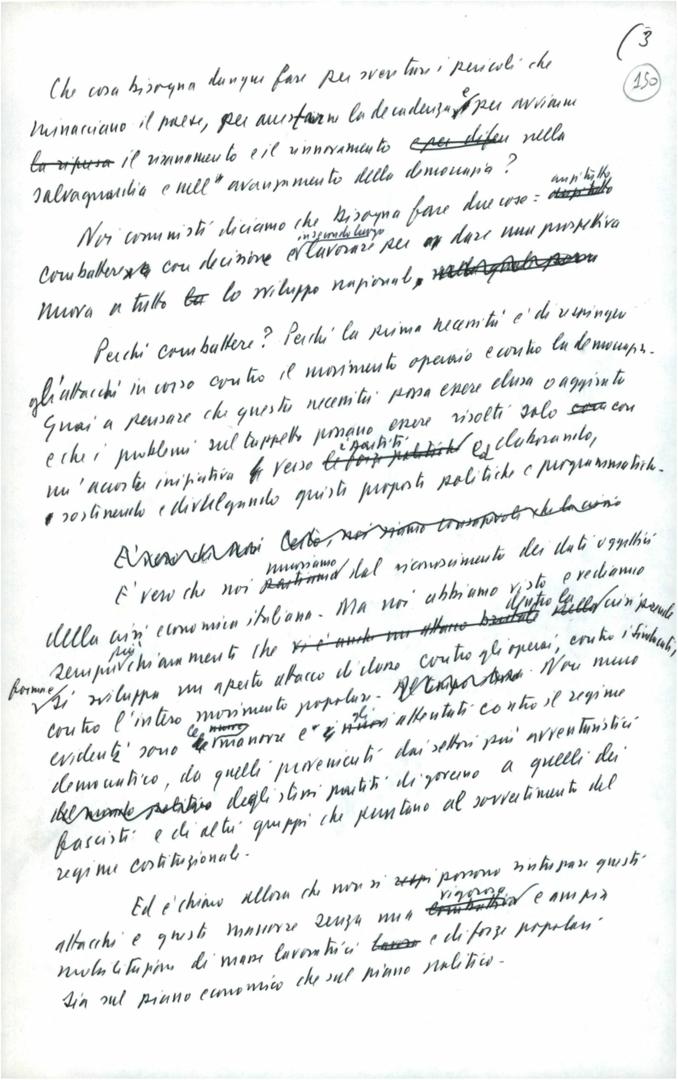 (3
150
Che cosa bisogna dunque fare per sventare i pericoli che
minacciano il paese, per arrestarne la decadenza e per avviarne
la ripresa il risanamento e il rinnovamento e per difen nella
salvaguardia e nell'avanzamento della democrazia?
Noi comunisti diciamo che bisogna fare due cose: anzitutto
combattere con decisione e in secondo luogo lavorare per dare una prospettiva
nuova a tutto lo sviluppo nazionale,
Perché combattere? Perché la prima necessità è di respingere
gli attacchi in corso contro il movimento operaio e contro la democrazia.
Guai a pensare che questa necessità possa essere elusa o aggirata
e che i problemi sul tappeto possano essere risolti solo con con
un'accorta iniziativa verso i Partiti le forze politiche ed elaborando,
sostenendo e divulgando giuste proposte politiche e programmatiche.
Certo, noi siamo consapevoli che la crisi
È vero che noi muoviamo partiamo dal riconoscimento dei dati oggettivi
della crisi economica italiana. Ma noi abbiamo visto e vediamo
sempre più chiaramente che vi è anche un attacco dentro la crisi prende
forma e si sviluppa un aperto attacco di classe contro gli operai, contro i sindacati,
contro l'intero movimento popolare. Non meno
evidenti sono le manovre e gli attentati contro il regime
democratico, da quelli provenienti dai settori più avventuristici
del mondo politico degli stessi partiti di governo a quelli dei
fascisti e di altri gruppi che puntano al sovvertimento del
regime costituzionale.
Ed è chiaro allora che non si possono rintuzzare questi
attacchi e queste manovre senza una vigorosa combattiva e ampia
mobilitazione di masse lavoratrici e di forze popolari
sia sul piano economico che sul piano politico.